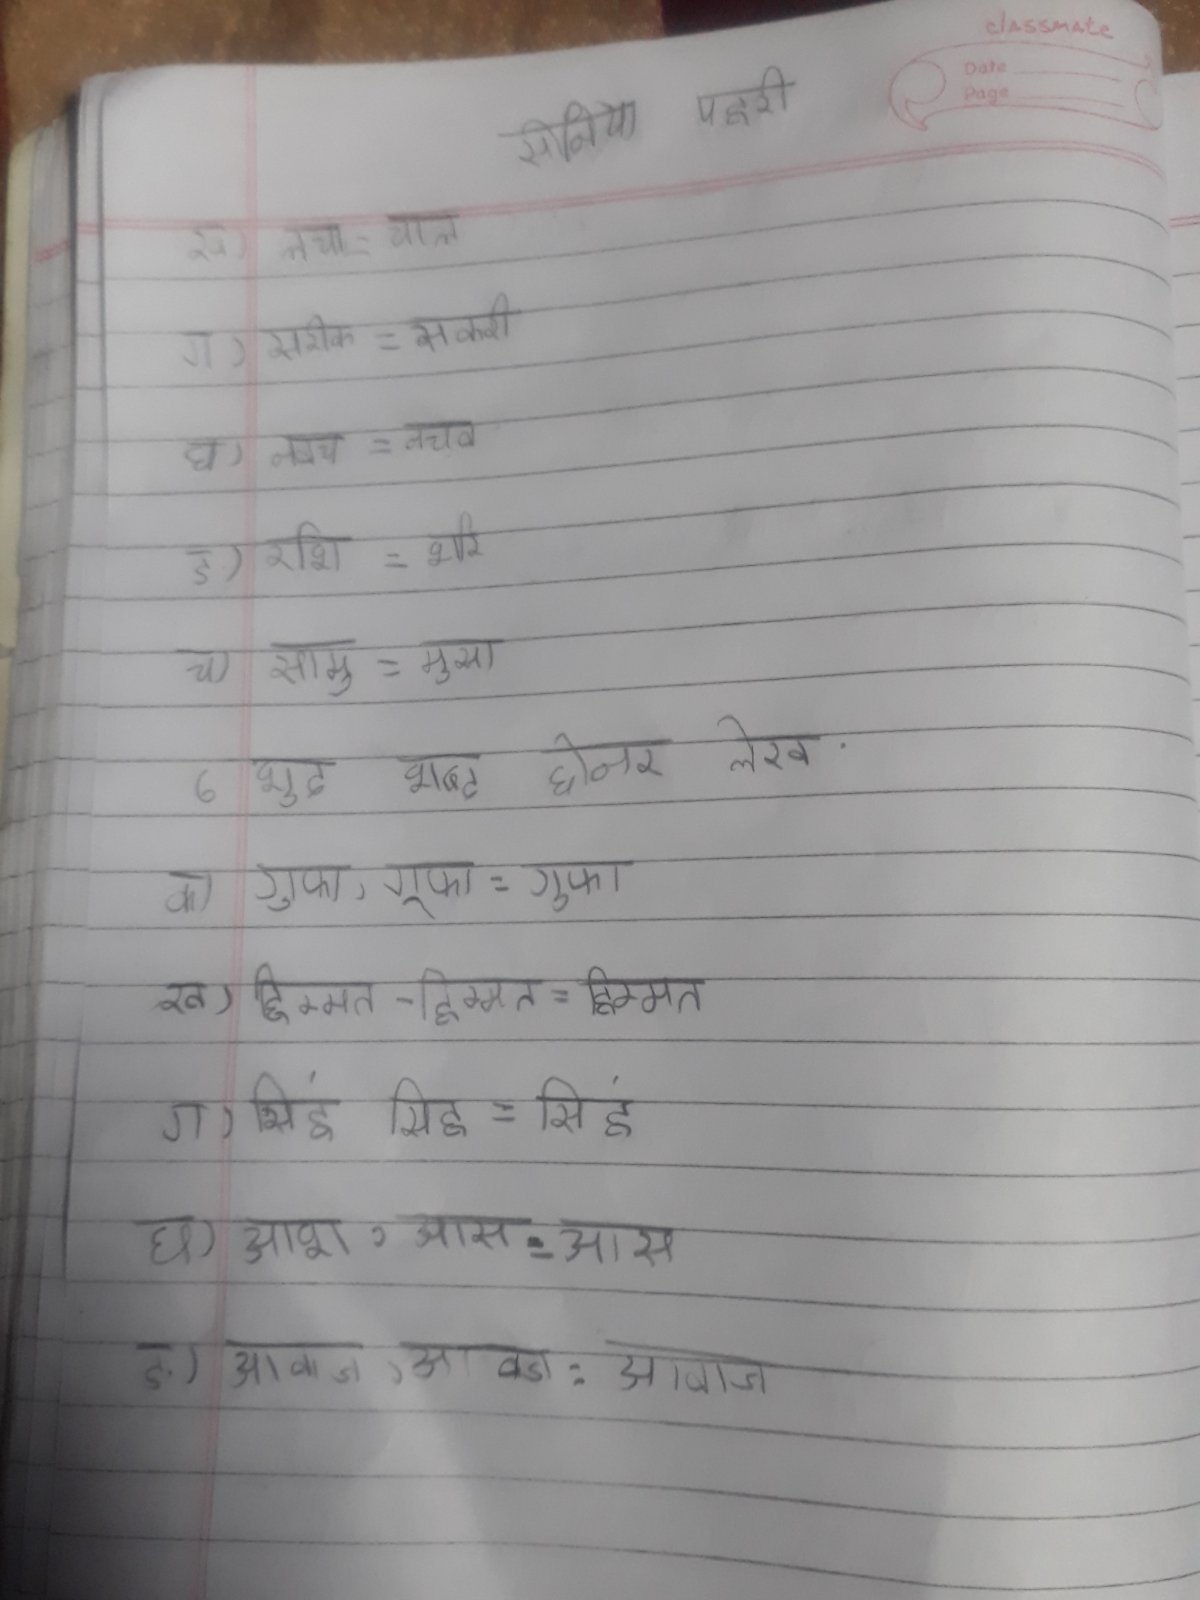 classmate
Date
Page
सोनिया पहरी
ख) लचा = चाल
ग) सरीक = सकरी
घ) नवच = नचव
ङ) रशि = शरि
च) सामु = मुसा
6 शुद्द शब्द छोनर लेख.
क) गुफा, गूफा = गुफा
ख) हिम्मत - हिम्मत = हिम्मत
ग) सिहं सिह = सिहं
घ) आश, आस = आस
ङ.) आवाज, आ वडा = आवाज